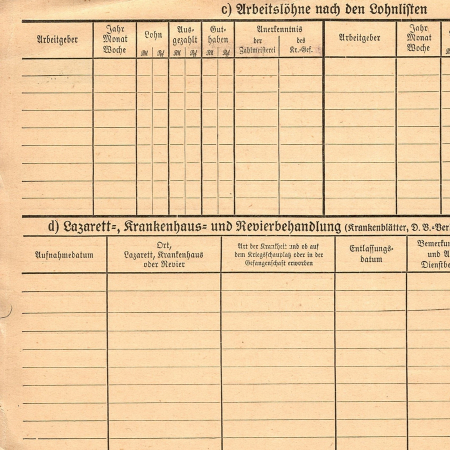 c) Arbeitslöhne nach den Lohnlisten
Arbeitgeber
Jahr
Monat
Woche
Lohn
Aus-
gezahlt
Gut-
haben
Anerkenntnis
der
Zahlmeisterei
des
Kr.-Gef.
Arbeitgeber
Jahr
Monat
Woche
d) Lazarett-, Krankenhaus- und Revierbehandlung (Krankenblätter, D. B.-Ver
Aufnahmedatum
Ort,
Lazarett, Krankenhaus
oder Revier
Art der Krankheit und ob auf
dem Kriegsschauplatz oder in der
Gefangenschaft erworben
Entlassungs-
datum
Bemerku
und A
Dienstbe